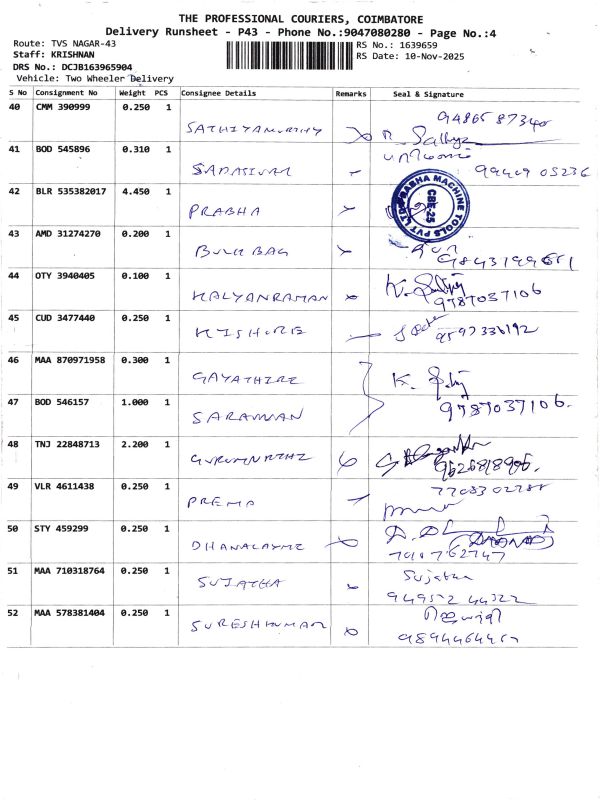 THE PROFESSIONAL COURIERS, COIMBATORE
Delivery Runsheet - P43 - Phone No.:9047080280 - Page No.:4
Route: TVS NAGAR-43
Staff: KRISHNAN
DRS No.: DCJB163965904
Vehicle: Two Wheeler Delivery
RS No.: 1639659
RS Date: 10-Nov-2025
S No Consignment No Weight PCS Consignee Details Remarks Seal & Signature
40 CMM 390999 0.250 1 SATHIYAMURTHY
41 BOD 545896 0.310 1 SADASIVAM
42 BLR 535382017 4.450 1 PRABHA PRABHA MACHINE TOOLS PVT LTD CBE-25
43 AMD 31274270 0.200 1 BULK BAG
44 OTY 3940405 0.100 1 KALYANRAMAN 9787037106
45 CUD 3477440 0.250 1 KISHORE 9597336192
46 MAA 870971958 0.300 1 GAYATHIRI
47 BOD 546157 1.000 1 SARAVANAN 9787037106.
48 TNJ 22848713 2.200 1 GURUMURTHI
49 VLR 4611438 0.250 1 PREMA
50 STY 459299 0.250 1
51 MAA 710318764 0.250 1 SUJATHA Sujatha 94952 44322
52 MAA 578381404 0.250 1 SURESHKUMAR